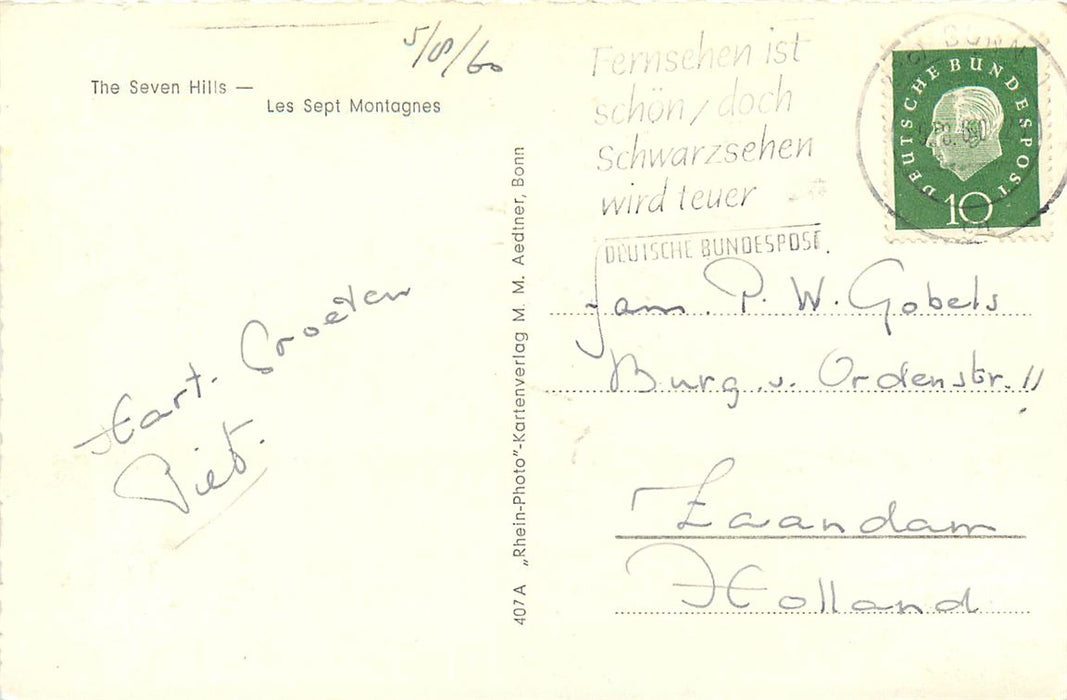 The Seven Hills —
Les Sept Montagnes
5/8/60
Fernsehen ist
schön, doch
Schwarzsehen
wird teuer
DEUTSCHE BUNDESPOST
BONN
DEUTSCHE BUNDESPOST
10
Hart. Groeten
Piet.
407A „Rhein-Photo"-Kartenverlag M. M. Aedtner, Bonn
Fam. P. W. Gobels
Burg. v. Ordenstr. 11
Zaandam
Holland